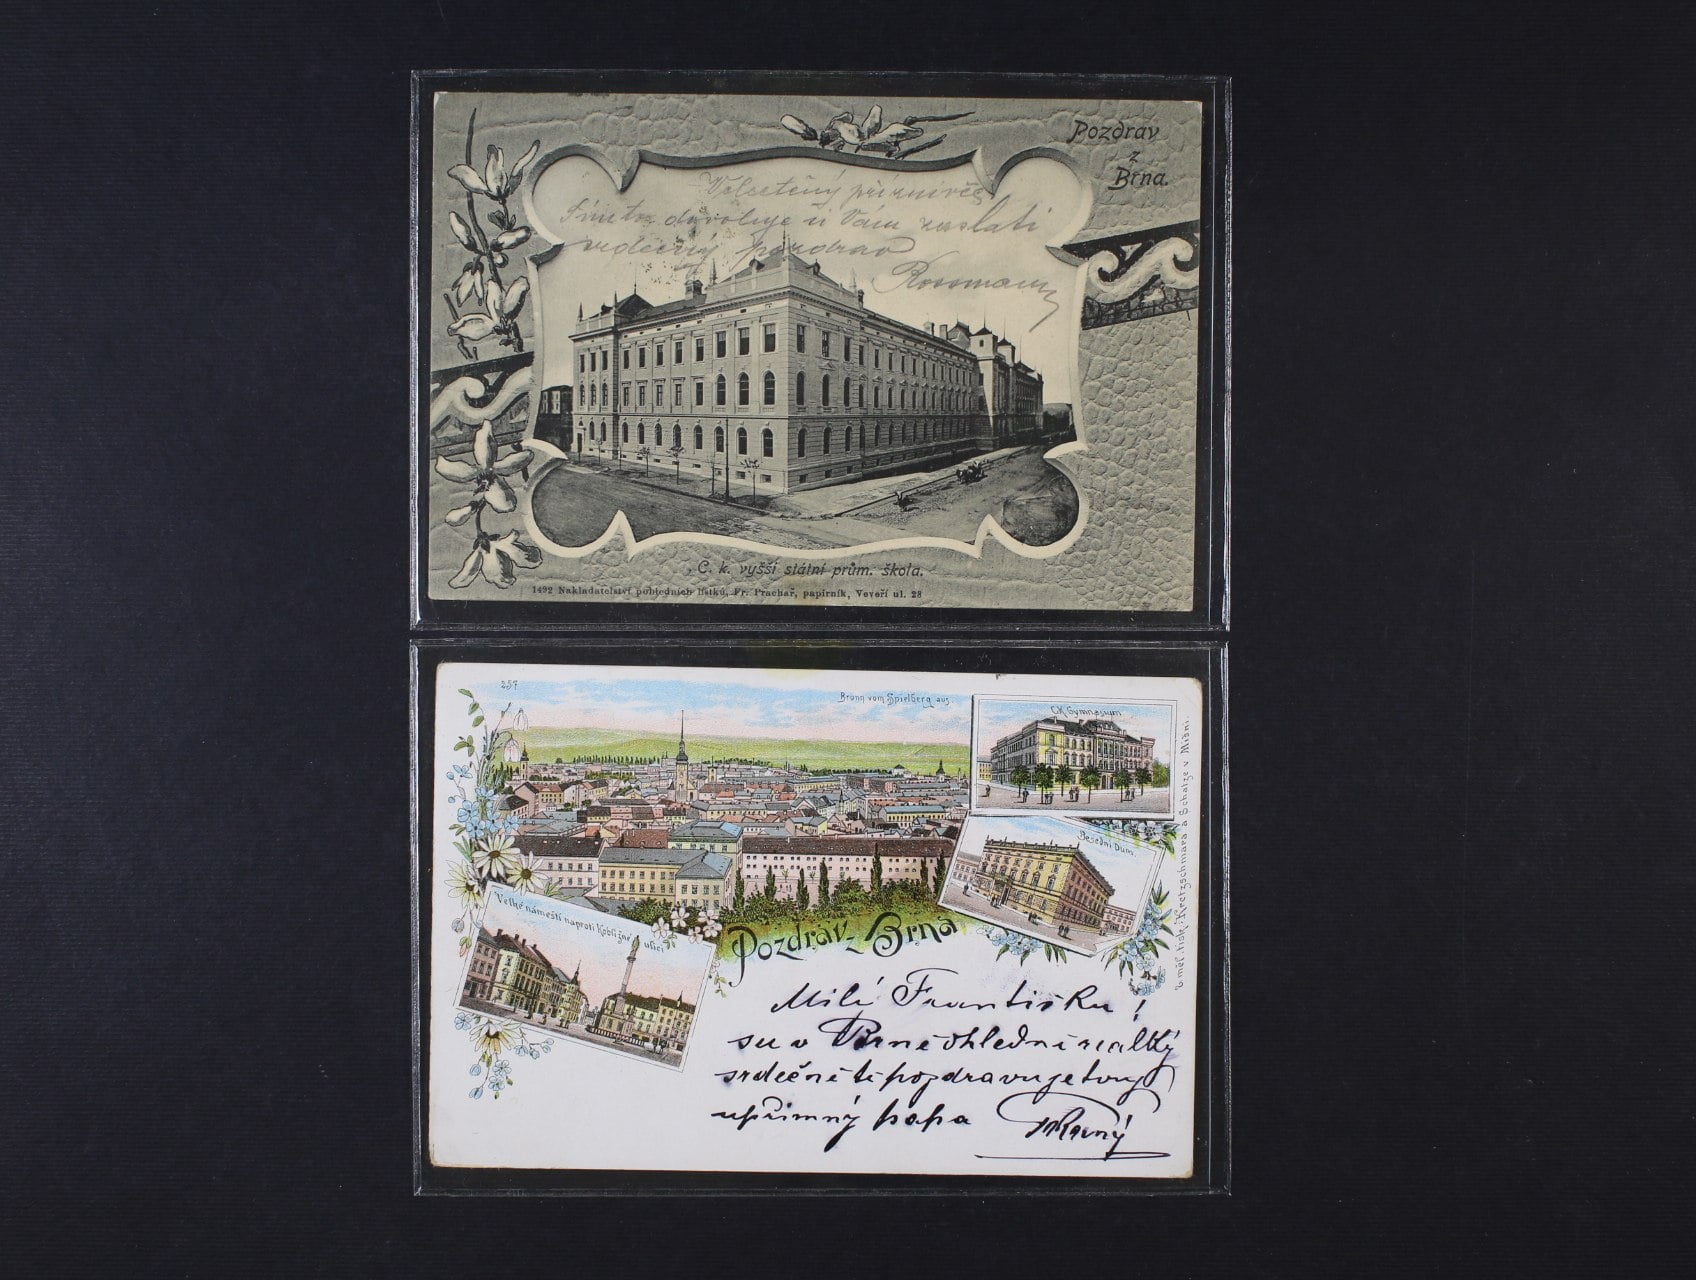 Pozdrav
z
Brna.
Velectěný příznivče
Tímto dovoluje si Vám zaslati
srdečný pozdrav
Rossmann
C. k. vyšší státní prům. škola.
1492 Nakladatelství pohledních lístků, Fr. Prachař, papírník, Veveří ul. 28
257
Brünn vom Spielberg aus.
C.K. Gymnasium
Besední Dům.
Velké náměstí naproti Kobližné ulici
Pozdrav z Brna
Uměl. tisk. Kretzschmara a Schatze v Míšni.
Milý Františku!
su v Brně ohlední
srdečně tě pozdravuje tvuj
upřímný papa